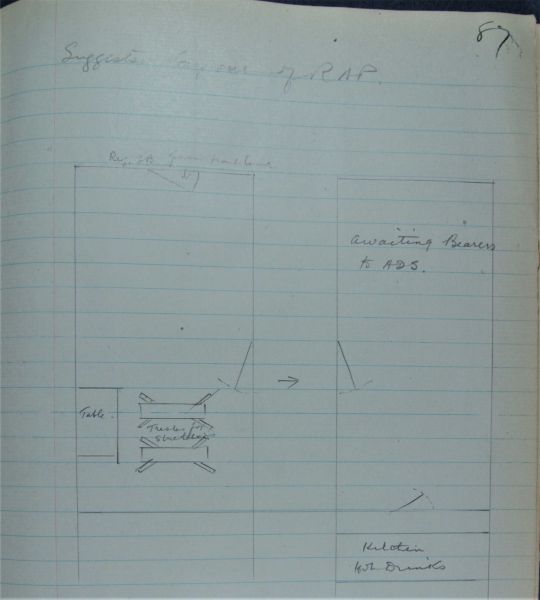 87
Suggested lay out of RAP.
Regtl
Awaiting Bearers
to ADS.
Table.
Trestles for
stretchers
Kitchen
Hot Drinks